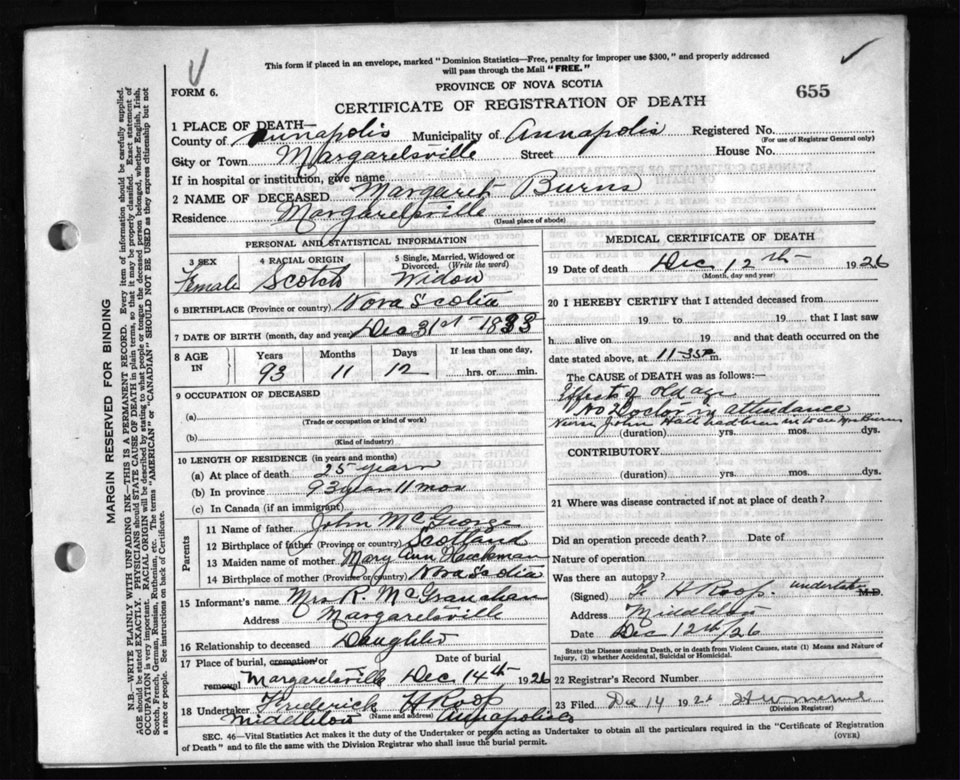 This form if placed in an envelope, marked "Dominion Statistics—Free, penalty for improper use $300," and properly addressed
will pass through the Mail "FREE."
FORM 6.
PROVINCE OF NOVA SCOTIA
CERTIFICATE OF REGISTRATION OF DEATH
655
1 PLACE OF DEATH—
County of Annapolis Municipality of Annapolis Registered No.
(For use of Registrar General only)
City or Town Margaretsville Street House No.
If in hospital or institution, give name
2 NAME OF DECEASED Margaret Burns
Residence Margaretsville
(Usual place of abode)
PERSONAL AND STATISTICAL INFORMATION
3 SEX 4 RACIAL ORIGIN 5 Single, Married, Widowed or Divorced. (Write the word)
Female Scotch Widow
6 BIRTHPLACE (Province or country) Nova Scotia
7 DATE OF BIRTH (month, day and year) Dec 31st 1833
8 AGE IN Years Months Days If less than one day,
93 11 12 hrs. or min.
9 OCCUPATION OF DECEASED
(a)
(Trade or occupation or kind of work)
(b)
(Kind of industry)
10 LENGTH OF RESIDENCE (in years and months)
(a) At place of death 25 years
(b) In province 93 years 11 mos
(c) In Canada (if an immigrant)
Parents
11 Name of father John McGeorge
12 Birthplace of father (Province or country) Scotland
13 Maiden name of mother Mary Ann Hackman
14 Birthplace of mother (Province or country) Nova Scotia
15 Informant's name Mrs R. McGranahan
Address Margaretsville
16 Relationship to deceased Daughter
17 Place of burial, cremation or removal Date of burial
Margaretsville Dec 14th 1926
18 Undertaker Frederick H Roop
(Name and address)
Middleton Annapolis Co
MEDICAL CERTIFICATE OF DEATH
19 Date of death Dec 12th 1926
(Month, day and year)
20 I HEREBY CERTIFY that I attended deceased from
19 to 19 that I last saw
h alive on 19 and that death occurred on the
date stated above, at 11-35 P m.
The CAUSE OF DEATH was as follows:—
Effects of old age
No Doctor in attendance
Nurse John Hall had been
(duration) yrs. mos. dys.
CONTRIBUTORY.
(duration) yrs. mos. dys.
21 Where was disease contracted if not at place of death?
Did an operation precede death? Date of
Nature of operation
Was there an autopsy?
(Signed) F H Roop. undertaker M.D.
Address Middleton
Date Dec 12th/26
State the Disease causing Death, or in death from Violent Causes, state (1) Means and Nature of
Injury, (2) whether Accidental, Suicidal or Homicidal.
22 Registrar's Record Number
23 Filed Dec 14 1926
(Division Registrar)
SEC. 46—Vital Statistics Act makes it the duty of the Undertaker or person acting as Undertaker to obtain all the particulars required in the "Certificate of Registration
of Death" and to file the same with the Division Registrar who shall issue the burial permit.
(OVER)
MARGIN RESERVED FOR BINDING
N.B.—WRITE PLAINLY WITH UNFADING INK—THIS IS A PERMANENT RECORD. Every item of information should be carefully supplied.
AGE should be stated EXACTLY. PHYSICIANS should STATE CAUSE OF DEATH in plain terms, so that it may be properly classified. Exact statement of
OCCUPATION is very important. RACIAL ORIGIN will be described by stating to what people or tongue the deceased person belonged, whether English, Irish,
Scotch, French, German, Russian, Ruthenian, etc. The terms "AMERICAN" or "CANADIAN" SHOULD NOT BE USED as they express citizenship but not
a race or people. See instructions on back of Certificate.